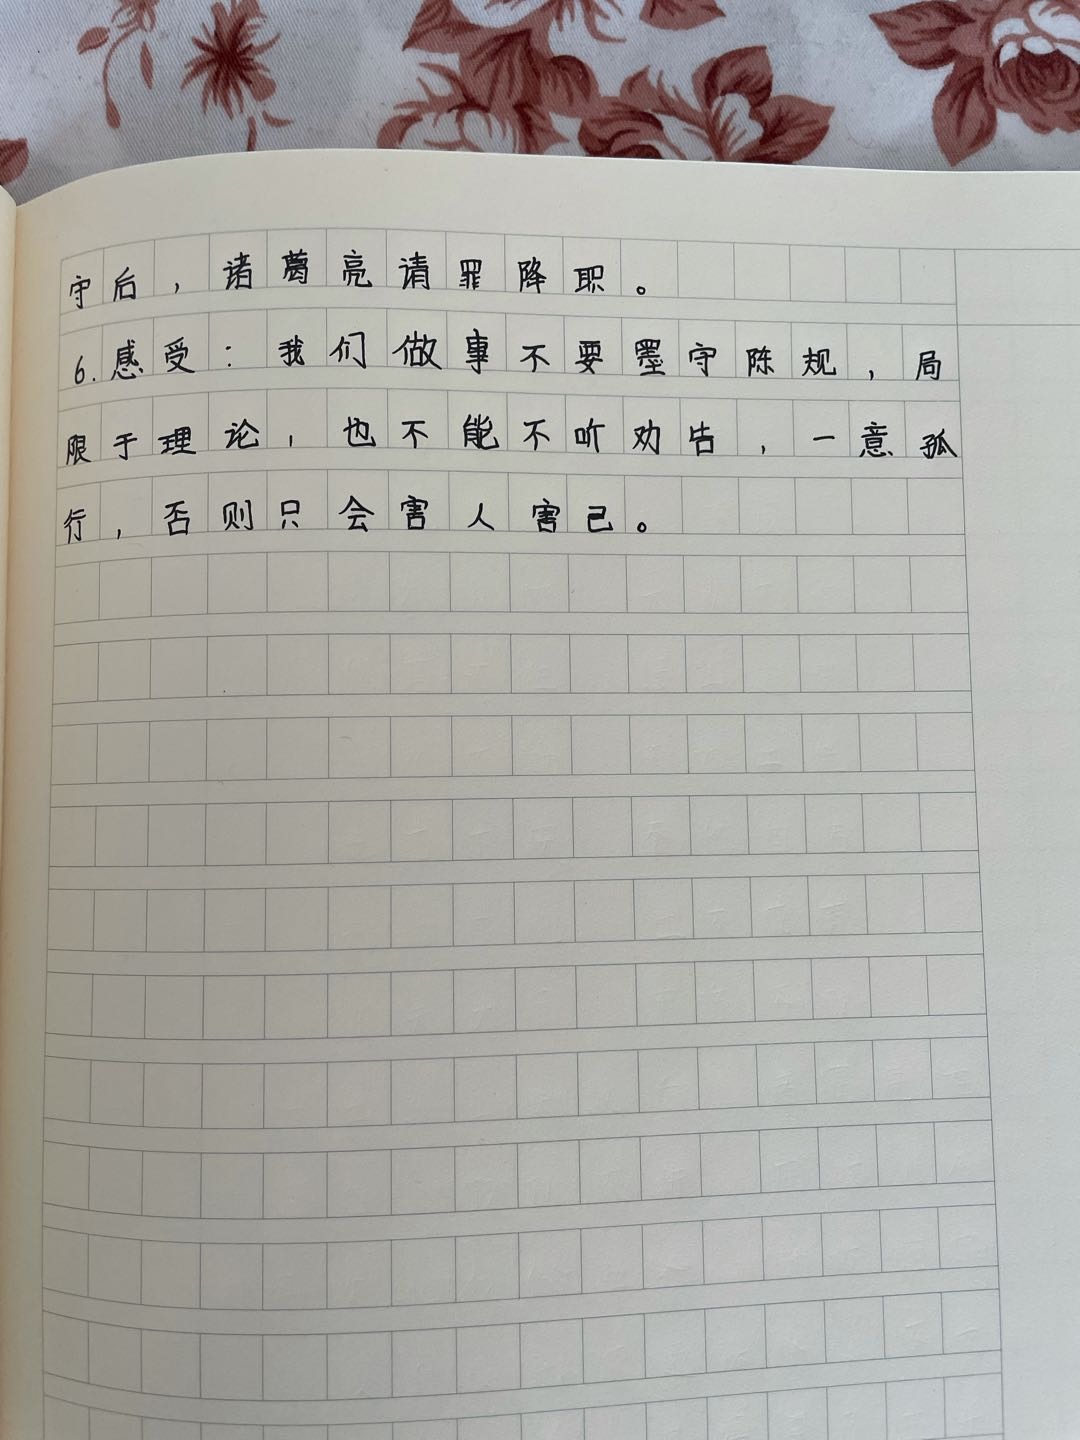 守后，诸葛亮请罪降职。
6.感受：我们做事不要墨守陈规，局
限于理论，也不能不听劝告，一意孤
行，否则只会害人害己。